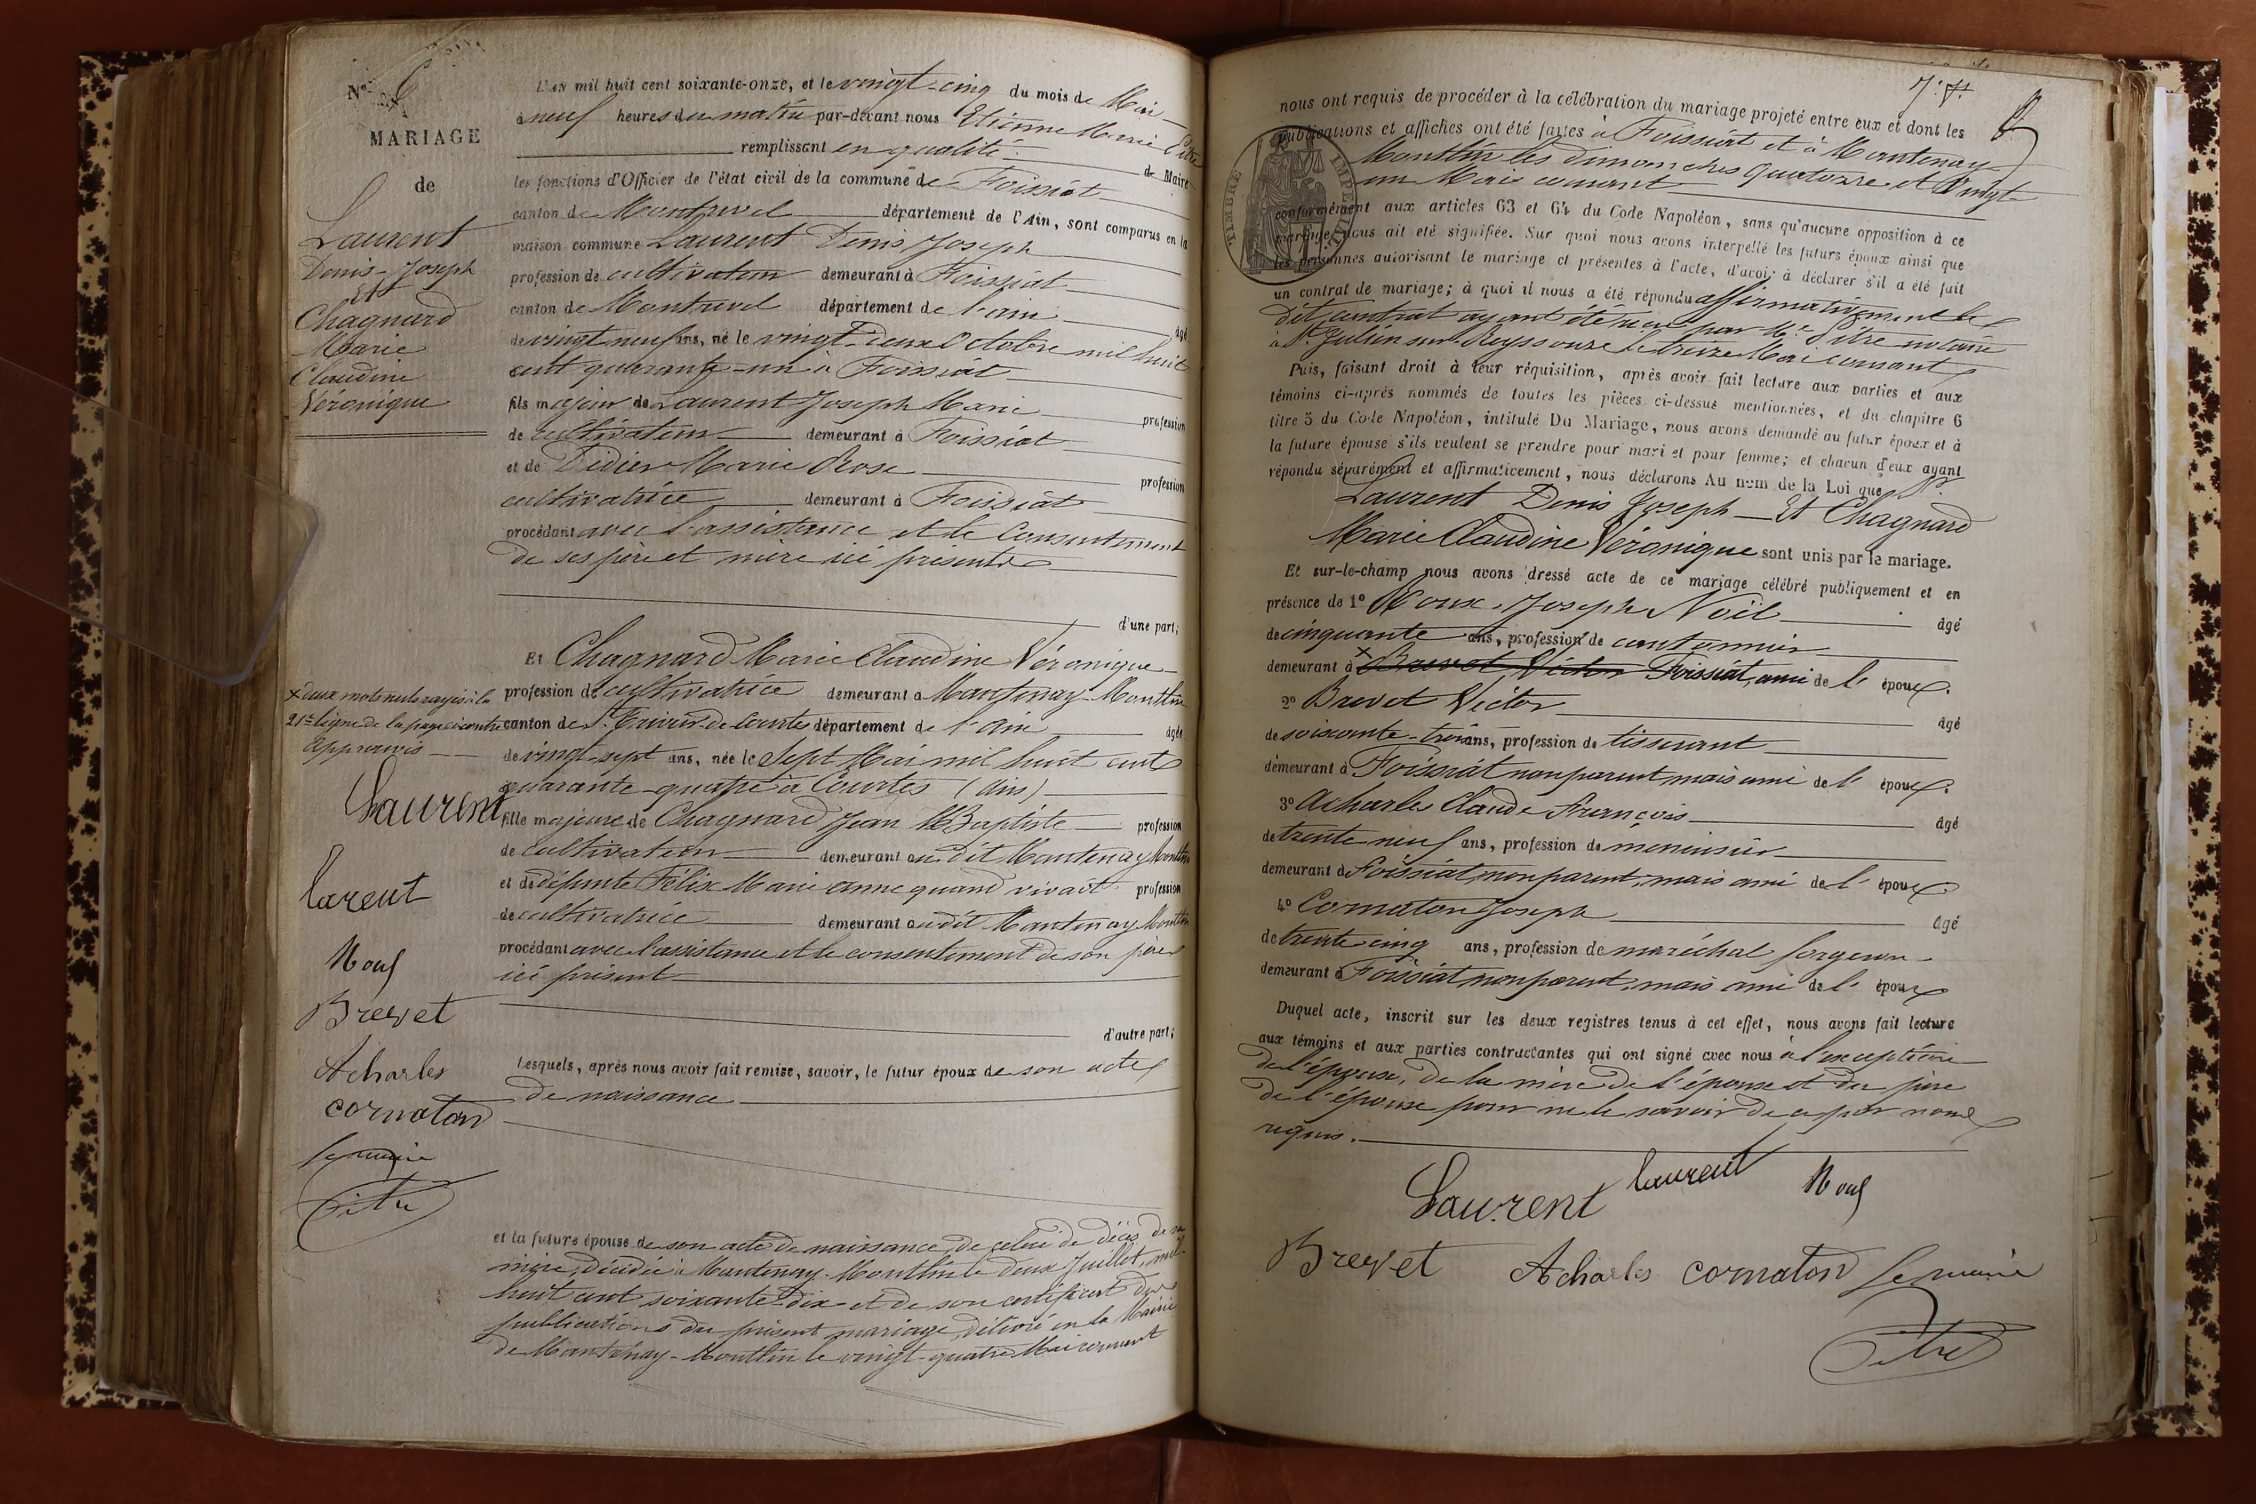 N° 6
MARIAGE
de
Laurent
Denis-Joseph
Et
Chagnard
Marie
Claudine
Véronique
L'an mil huit cent soixante-onze, et le vingt-cinq du mois de Mai
à neuf heures du matin par-devant nous Etienne Marie Pitre
remplissant en qualité de Maire
les fonctions d'Officier de l'état civil de la commune de Foissiat
canton de Montrevel département de l'Ain, sont comparus en la
maison commune Laurent Denis Joseph
profession de cultivateur demeurant à Foissiat
canton de Montrevel département de l'ain âgé
de vingt neuf ans, né le vingt-deux Octobre mil huit
cent quarante-un à Foissiat
fils majeur de Laurent Joseph Marie profession
de cultivateur demeurant à Foissiat
et de Didier Marie Rose profession
cultivatrice demeurant à Foissiat
procédant avec l'assistance et le consentement
de ses père et mère ici présents
d'une part;
Et Chagnard Marie Claudine Véronique
profession de cultivatrice demeurant à Mantenay-Montlin
canton de St Trivier de Courtes département de l'ain âgée
de vingt-sept ans, née le Sept Mai mil huit cent
quarante-quatre à Courtes (Ain)
fille majeure de Chagnard Jean Bte Baptiste profession
de cultivateur demeurant au dit Mantenay Montlin
et de défunte Félix Marie anne quand vivait profession
de cultivatrice demeurant au dit Mantenay Montlin
procédant avec l'assistance et le consentement de son père
ici présent
d'autre part;
Lesquels, après nous avoir fait remise, savoir, le futur époux de son acte
de naissance
et la future épouse de son acte de naissance, de celui de décès de sa
mère, décédée à Mantenay-Montlin le deux Juillet mil
huit cent soixante-dix et de son certificat de
publications du présent mariage, délivré en la Mairie
de Mantenay-Montlin le vingt-quatre Mai courant
x deux mots nuls rayés à la
21e ligne de la page ci contre
approuvés
Laurent
larent
Nouf
Brevet
Acharles
cornaton
le maire
Pitre
nous ont requis de procéder à la célébration du mariage projeté entre eux et dont les
publications et affiches ont été faites à Foissiat et à Mantenay
Montlin les dimanches Quatorze et Vingt
un Mai courant
TIMBRE IMPÉRIAL
conformément aux articles 63 et 64 du Code Napoléon, sans qu'aucune opposition à ce
mariage nous ait été signifiée. Sur quoi nous avons interpellé les futurs époux ainsi que
les personnes autorisant le mariage et présentes à l'acte, d'avoir à déclarer s'il a été fait
un contrat de mariage; à quoi il nous a été répondu affirmativement le
dit contrat ayant été reçu par Me Pitre notaire
à St Julien sur Reyssouze le treize Mai courant
Puis, faisant droit à leur réquisition, après avoir fait lecture aux parties et aux
témoins ci-après nommés de toutes les pièces ci-dessus mentionnées, et du chapitre 6
titre 5 du Code Napoléon, intitulé Du Mariage, nous avons demandé au futur époux et à
la future épouse s'ils veulent se prendre pour mari et pour femme; et chacun d'eux ayant
répondu séparément et affirmativement, nous déclarons Au nom de la Loi que
Laurent Denis Joseph Et Chagnard
Marie Claudine Véronique sont unis par le mariage.
Et sur-le-champ nous avons dressé acte de ce mariage célébré publiquement et en
présence de 1° Joseph Noël âgé
de cinquante ans, profession de cantonnier
demeurant à x Brevet Victor Foissiat, ami de l'époux.
2° Brevet Victor âgé
de soixante-trois ans, profession de tisserant
demeurant à Foissiat non parent, mais ami de l'époux.
3° Acharles Claude François âgé
de trente neuf ans, profession de menuisier
demeurant à Foissiat, non parent, mais ami de l'époux
4° Cornaton Joseph âgé
de trente-cinq ans, profession de maréchal forgeron
demeurant à Foissiat non parent, mais ami de l'époux
Duquel acte, inscrit sur les deux registres tenus à cet effet, nous avons fait lecture
aux témoins et aux parties contractantes qui ont signé avec nous à l'exception
de l'épouse, de la mère de l'épouse et du père
de l'épouse pour ne le savoir de ce par nous
requis.
Laurent laurent Nouf
Brevet Acharles cornaton le maire
Pitre